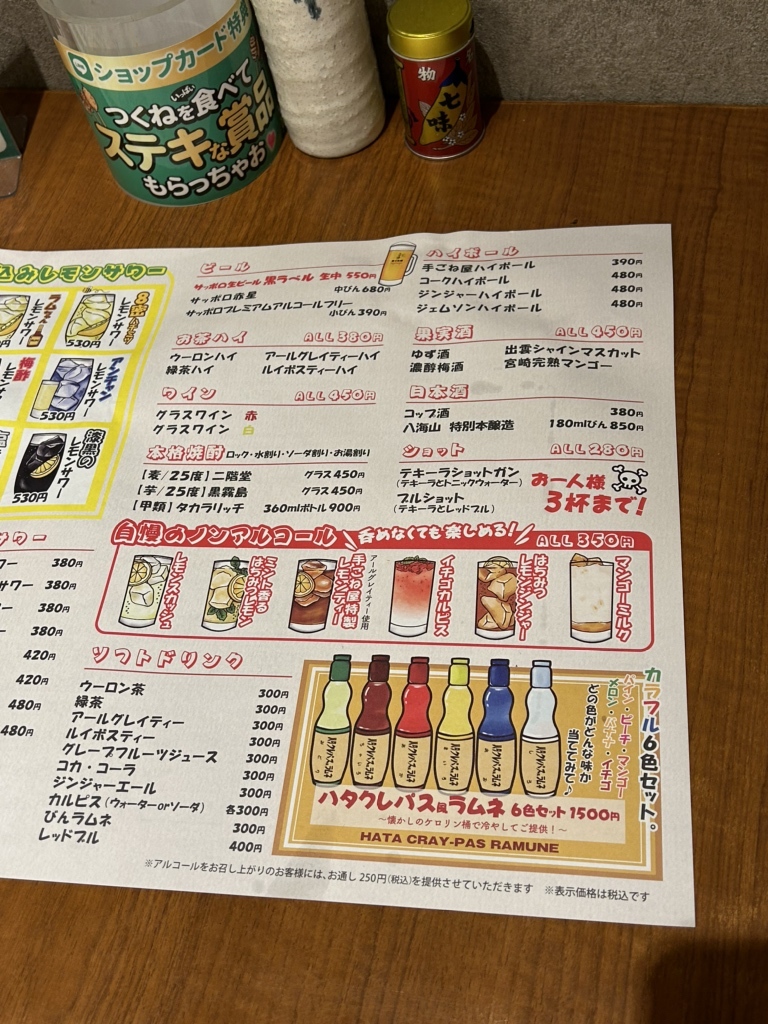 ショップカード特典
つくねを食べて
いっぱい
ステキな賞品
もらっちゃお
物
七味
込みレモンサワー
レモンサワー
530円
8蜜
はちみつ
レモンサワー
530円
梅酢
アンチャン
レモンサワー
530円
漆黒の
レモンサワー
530円
ビール
サッポロ生ビール 黒ラベル 生中 550円
サッポロ赤星 中びん 680円
サッポロプレミアムアルコールフリー
小びん 390円
お茶ハイ ALL 380円
ウーロンハイ アールグレイティーハイ
緑茶ハイ ルイボスティーハイ
ワイン ALL 450円
グラスワイン 赤
グラスワイン 白
本格焼酎 ロック・水割り・ソーダ割り・お湯割り
【麦/25度】二階堂 グラス 450円
【芋/25度】黒霧島 グラス 450円
【甲類】タカラリッチ 360mlボトル 900円
ハイボール
手ごね屋ハイボール 390円
コークハイボール 480円
ジンジャーハイボール 480円
ジェムソンハイボール 480円
果実酒 ALL 450円
ゆず酒 出雲シャインマスカット
濃醇梅酒 宮崎完熟マンゴー
日本酒
コップ酒 380円
八海山 特別本醸造 180mlびん 850円
ショット ALL 280円
テキーラショットガン
(テキーラとトニックウォーター)
ブルショット
(テキーラとレッドブル)
お一人様
3杯まで!
自慢のノンアルコール 呑めなくても楽しめる! ALL 350円
レモンスカッシュ
ミント香る
はちみつレモン
手ごね屋特製
レモンティー
アールグレイティー使用
イチゴカルピス
はちみつ
レモンジンジャー
マンゴーミルク
サワー
ワー 380円
サワー 380円
ー 380円
380円
420円
420円
480円
480円
ソフトドリンク
ウーロン茶 300円
緑茶 300円
アールグレイティー 300円
ルイボスティー 300円
グレープフルーツジュース 300円
コカ・コーラ 300円
ジンジャーエール 300円
カルピス(ウォーターorソーダ) 各300円
びんラムネ 300円
レッドブル 400円
カラフル6色セット。
パイン・ピーチ・マンゴー
メロン・バナナ・イチゴ
どの色がどんな味か
当ててみて♪
ハタクレパス風ラムネ 6色セット 1500円
〜懐かしのケロリン桶で冷やしてご提供!〜
HATA CRAY-PAS RAMUNE
※アルコールをお召し上がりのお客様には、お通し 250円(税込)を提供させていただきます ※表示価格は税込です